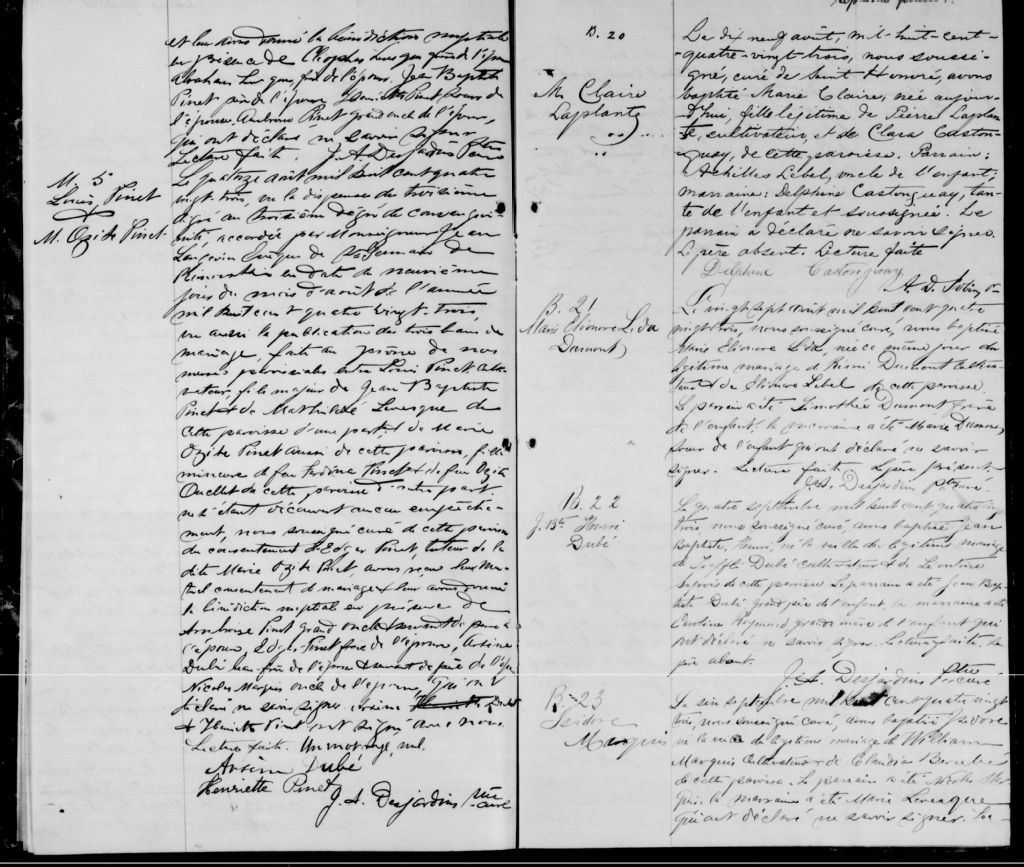 et leur avons donné la bénédiction nuptiale
en présence de Cléophas Levesque père de l'époux
Abraham Levesque, frère de l'époux, Jean Baptiste
Pinet père de l'épouse, Pinet
l'épouse, Ambroise Pinet grand oncle de l'épouse,
qui ont déclaré ne savoir signer
Lecture faite. J. A. Desjardins Ptre Curé
M. 5
Louis Pinet
&
M. Ozite Pinet
Le quatorze août mil huit cent quatre
vingt-trois, vu la dispense du troisième
degré au troisième degré de consangui-
nité accordée par Monseigneur Jean
Langevin Evêque de St Germain de
Rimouski en date du neuvième
jour du mois d'août de l'année
mil huit cent quatre vingt-trois,
vu aussi la publication des trois bans de
mariage, faite au prône de nos
messes paroissiales entre Louis Pinet culti-
vateur, fils majeur de Jean Baptiste
Pinet & de Mathilde Levesque de
cette paroisse d'une part, & de Marie
Ozite Pinet aussi de cette paroisse, fille
mineure de feu Pinet & de feu Ozite
Ouellet de cette paroisse d'autre part
ne s'étant découvert aucun empêche-
ment, nous soussigné curé de cette paroisse
du consentement d'Edgar Pinet, tuteur de la
dite Marie Ozite Pinet avons reçu leur mu-
tuel consentement de mariage & leur avons donné
la bénédiction nuptiale en présence de
Ambroise Pinet grand oncle & servant de père à
l'épouse, Pinet frère de l'épouse, Arsène
Dubé beau-frère de l'époux & servant de père de l'époux
Nicolas Marquis oncle de l'épouse, Qui ont
déclaré ne savoir signer. Arsène Dubé
& Henriette Pinet ont signé avec nous.
Lecture faite. Un mot rayé nul.
Arsène Dubé
Henriette Pinet
J. A. Desjardins Ptre Curé
B. 20
M. Claire
Laplante
Le dix neuf août, mil-huit-cent-
quatre-vingt-trois, nous soussi-
gné, curé de Saint Honoré, avons
baptisé Marie Claire, née aujour-
d'hui, fille légitime de Pierre Laplan-
te, cultivateur, et de Clara Caston-
guay, de cette paroisse. Parrain:
Achilles Lebel, oncle de l'enfant;
marraine: Delphine Castonguay, tan-
te de l'enfant et soussignée. Le
parrain a déclaré ne savoir signer.
Le père absent. Lecture faite
Delphine Castonguay
B. 21
Marie Elionore Lida
Dumont
Le vingt sept août mil huit cent quatre
vingt-trois, nous soussigné curé, avons baptisé
Marie Elionore Lida, née ce même jour du
légitime mariage d'Rémi Dumont cultiva-
teur & de Elionore Lebel de cette paroisse
Le parrain a été Timothée Dumont frère
de l'enfant, la marraine a été Marie Dumont,
soeur de l'enfant qui ont déclaré ne savoir
signer. Lecture faite. Le père présent
J. A. Desjardins Ptre Curé
B. 22
J. Bte Henri
Dubé
Le quatre septembre mil huit cent quatre vingt
trois nous soussigné curé avons baptisé Jean
Baptiste, Henri, né la veille du légitime mariage
de Dubé cultivateur & de
de cette paroisse Le parrain a été Jean Bap-
tiste Dubé grand-père de l'enfant, la marraine a été
Caroline Raymond grande mère de l'enfant qui
ont déclaré ne savoir signer. Lecture faite. Le
père absent.
J. A. Desjardins Ptre curé
B. 23
Isidore
Marquis
Le six septembre mil huit cent quatre vingt
trois, nous soussigné curé, avons baptisé Isidore
né la du légitime mariage de William
Marquis cultivateur & de Claudia
de cette paroisse. Le parrain a été Nicolas Mar-
quis, la marraine a été Marie Levesque
qui ont déclaré ne savoir signer. Le-